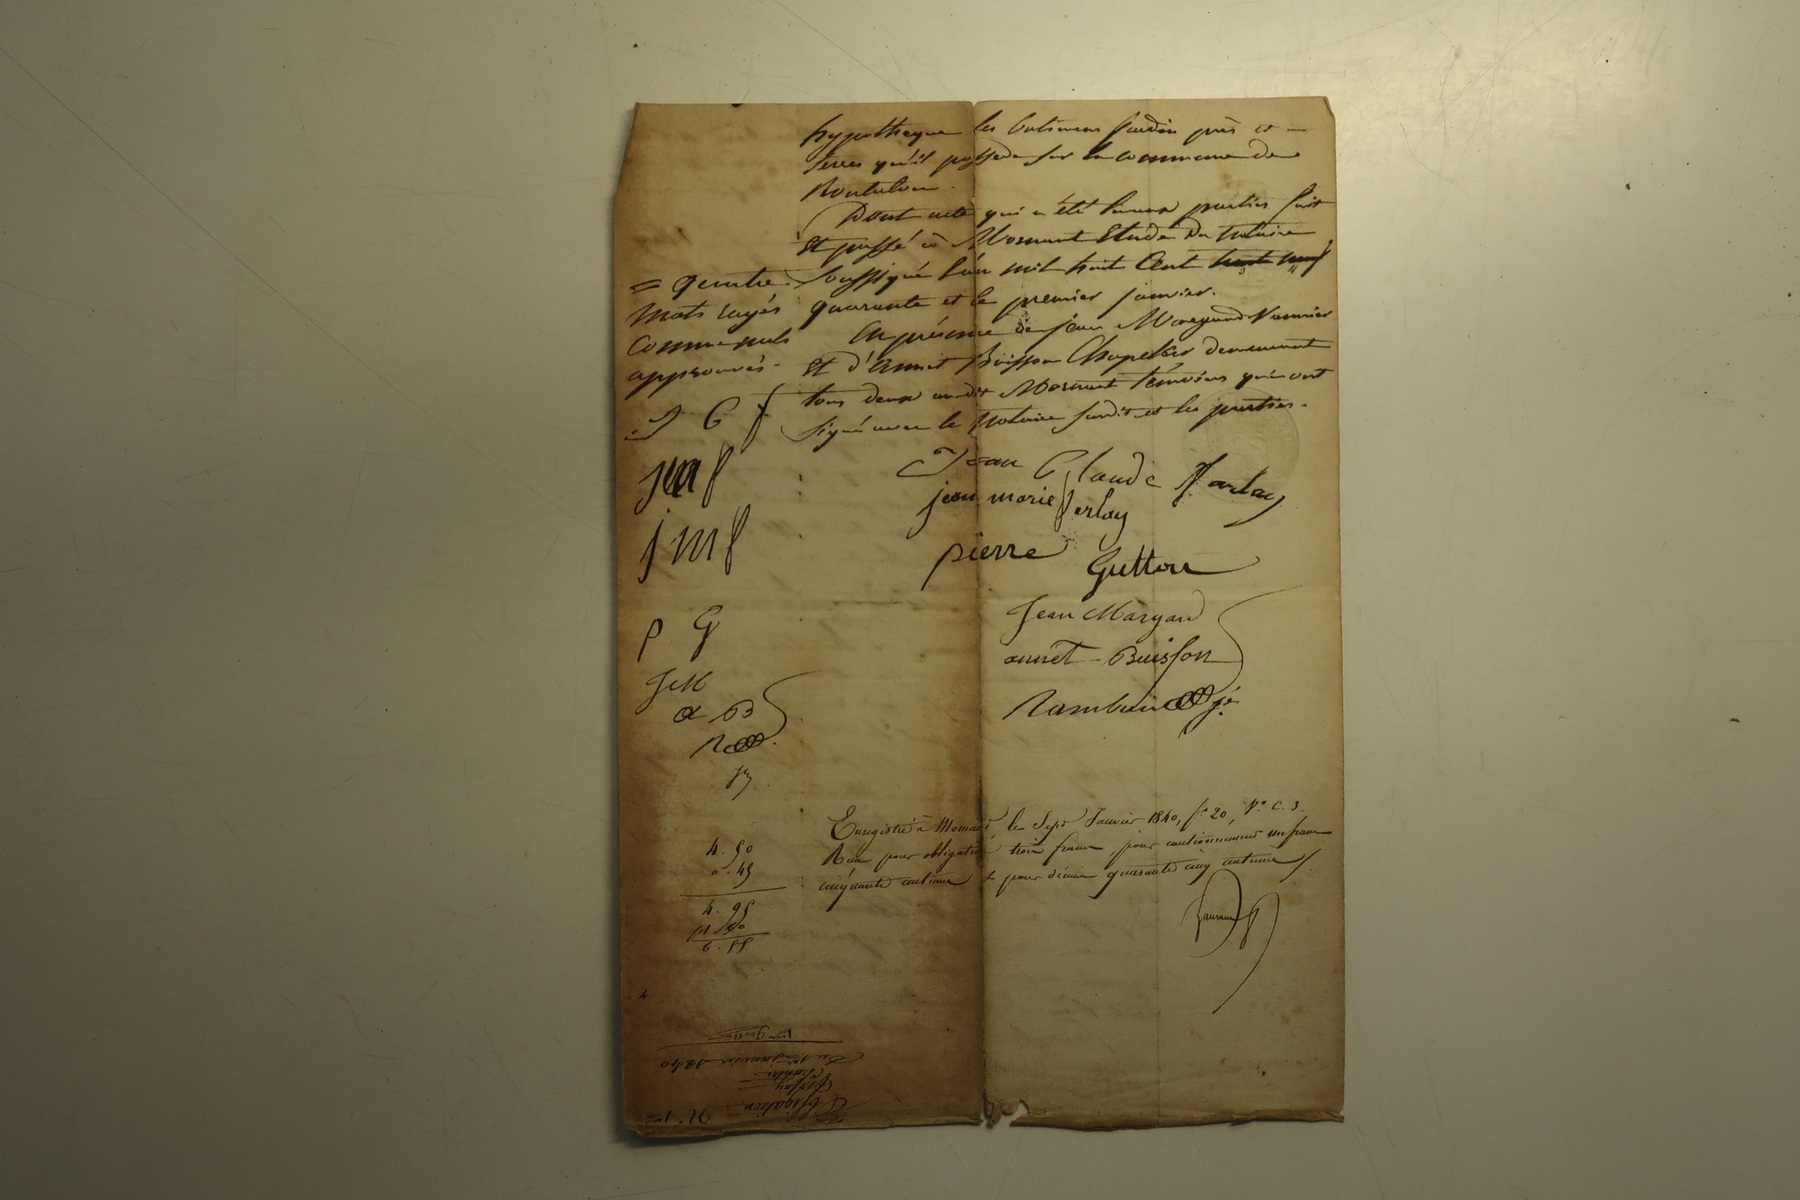 hypotheque les batimens jardin près et
terres qu'il possede sur la commune de
Rontalon.
Dont acte qui a été lu aux parties fait
et passé à Mornant Etude du notaire
soussigné l'an mil huit Cent trente neuf
quarante et le premier janvier.
En présence de jean Margand Vannier
et d'annet Buisson Chapelier demeurant
tous deux audit Mornant témoins qui ont
signé avec le notaire susdit et les parties.
= quatre
mots rayés
comme nuls
approuvés.
J C f
jmf
jmf
p G
JM
a B
R
Jean Claude ferlay
jean marie ferlay
pierre Gutton
Jean Margand
annet Buisson
Enregistré à Mornant, le Sept Janvier 1840, f° 20, V° C. 3.
Reçu pour obligation trois francs, pour cautionnement un franc
cinquante centimes et pour décime quarante cinq centimes
4. 50
". 45
4. 95
N° 1er
Obligation
Du 1er janvier 1840
1ere grosse